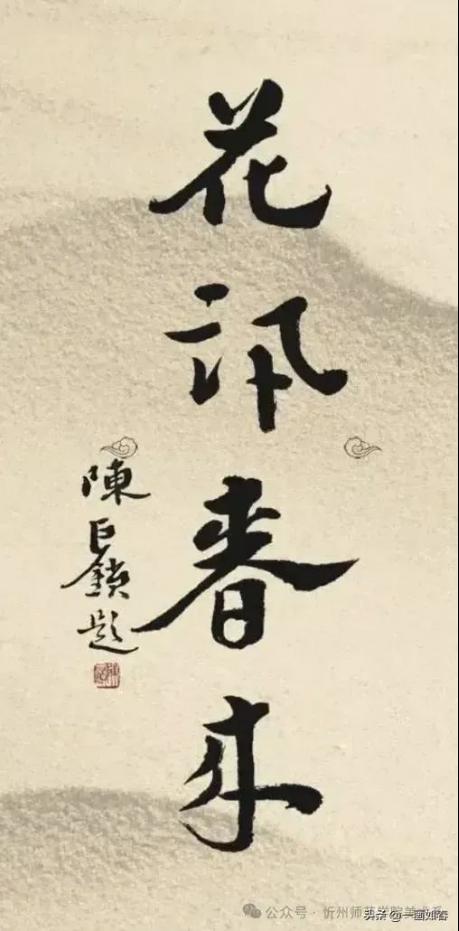 花讯春来
陳巨鎖题
公众号·忻州师范学院美术系
头条@一画如春